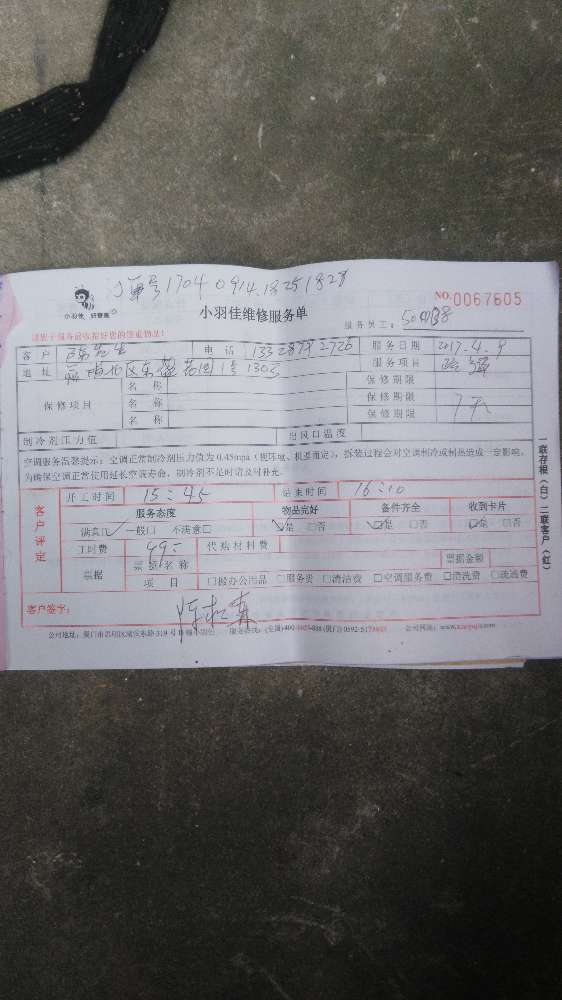 单号1704091418251828
小羽佳 好管家
小羽佳维修服务单
NO:0067605
服务员工:
请您于服务前收拾好您的贵重物品!
客户 陈先生 电话 服务日期 2017.4.9
地址 1号1303 服务项目 疏通
保修项目 名称 保修期限
名称 保修期限 7天
名称 保修期限
制冷剂压力值 出风口温度
空调服务温馨提示:空调正常制冷剂压力值为0.45mpa(视环境、机型而定),拆装过程会对空调制冷或制热造成一定影响,
为确保空调正常使用延长空调寿命,制冷剂不足时请及时补充。
客户评定
开工时间 15:45 结束时间 16:10
服务态度 物品完好 备件齐全 收到卡片
满意☑ 一般□ 不满意□ ☑是 □否 ☑是 □否 ☑是 □否
工时费 99- 代购材料费
票据 票据名称 票据金额
项目 □报办公用品 □服务费 □清洁费 □空调服务费 □清洗费 □疏通费
客户签字:
一联存根(白)二联客户(红)